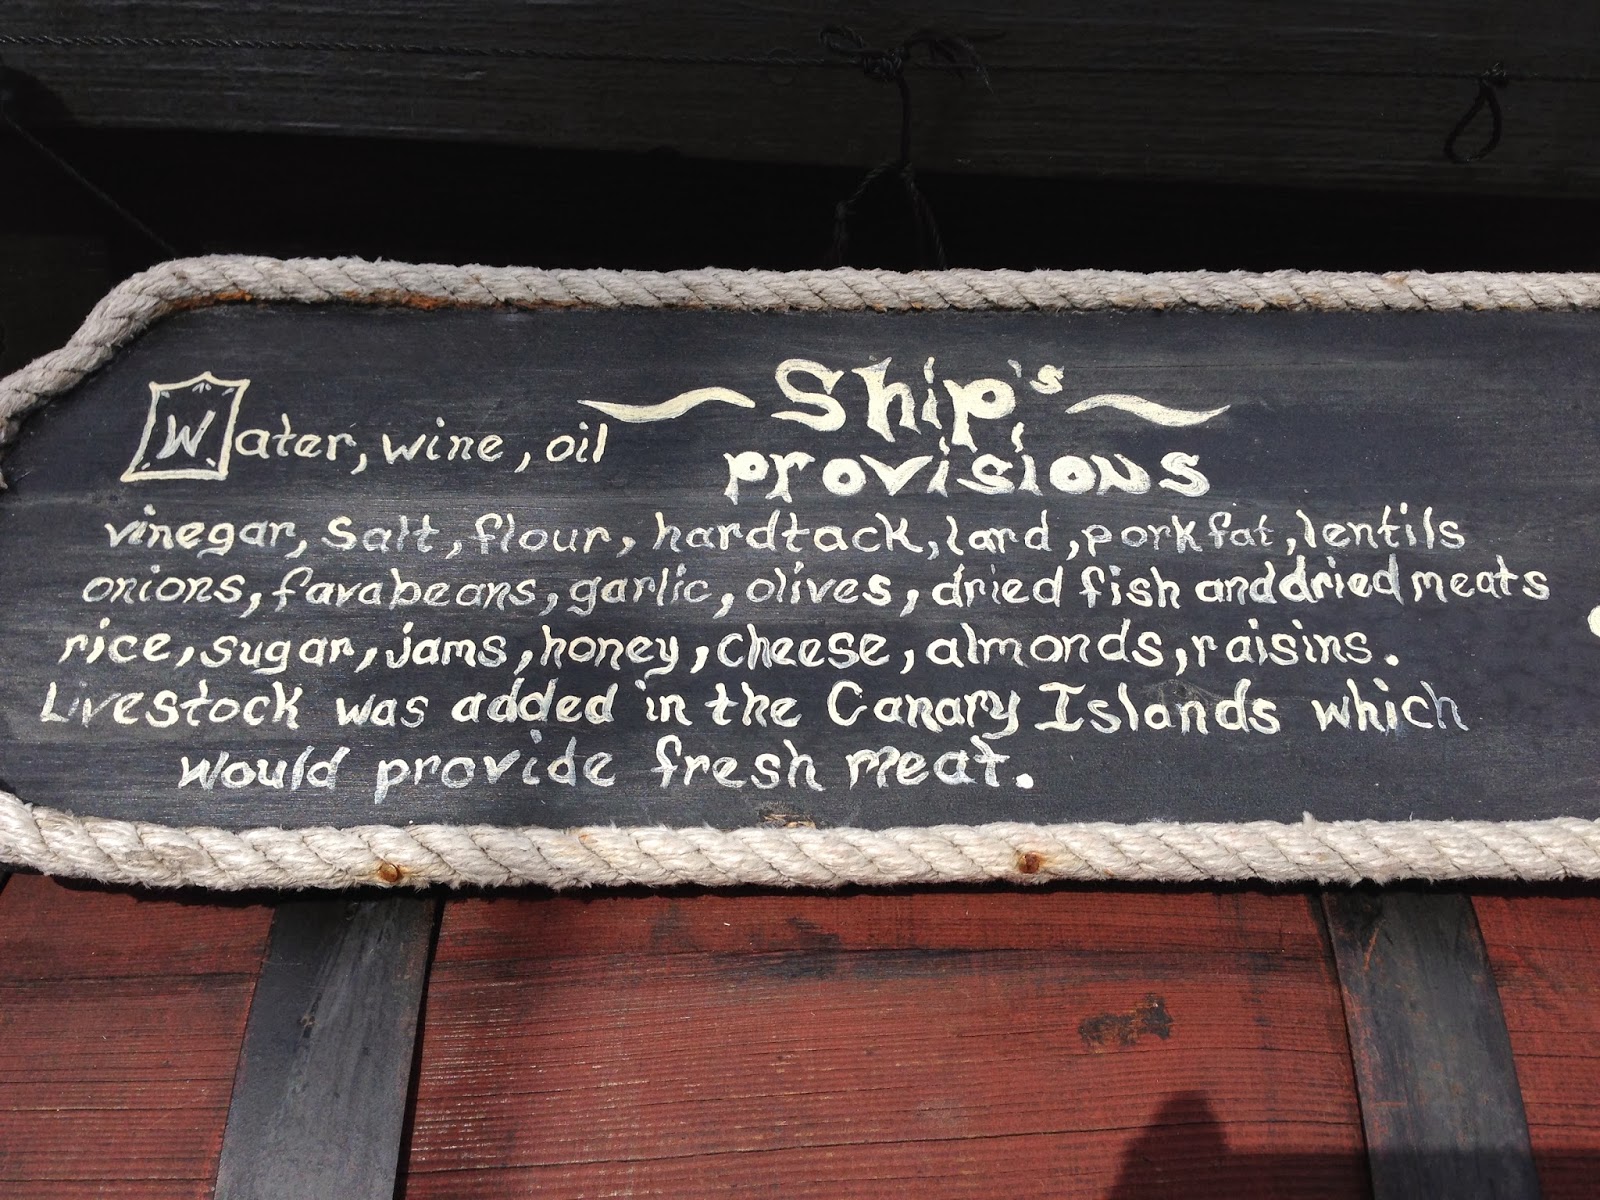 Ship's
provisions
Water, wine, oil
vinegar, salt, flour, hardtack, lard, pork fat, lentils
onions, fava beans, garlic, olives, dried fish and dried meats
rice, sugar, jams, honey, cheese, almonds, raisins.
Livestock was added in the Canary Islands which
would provide fresh meat.